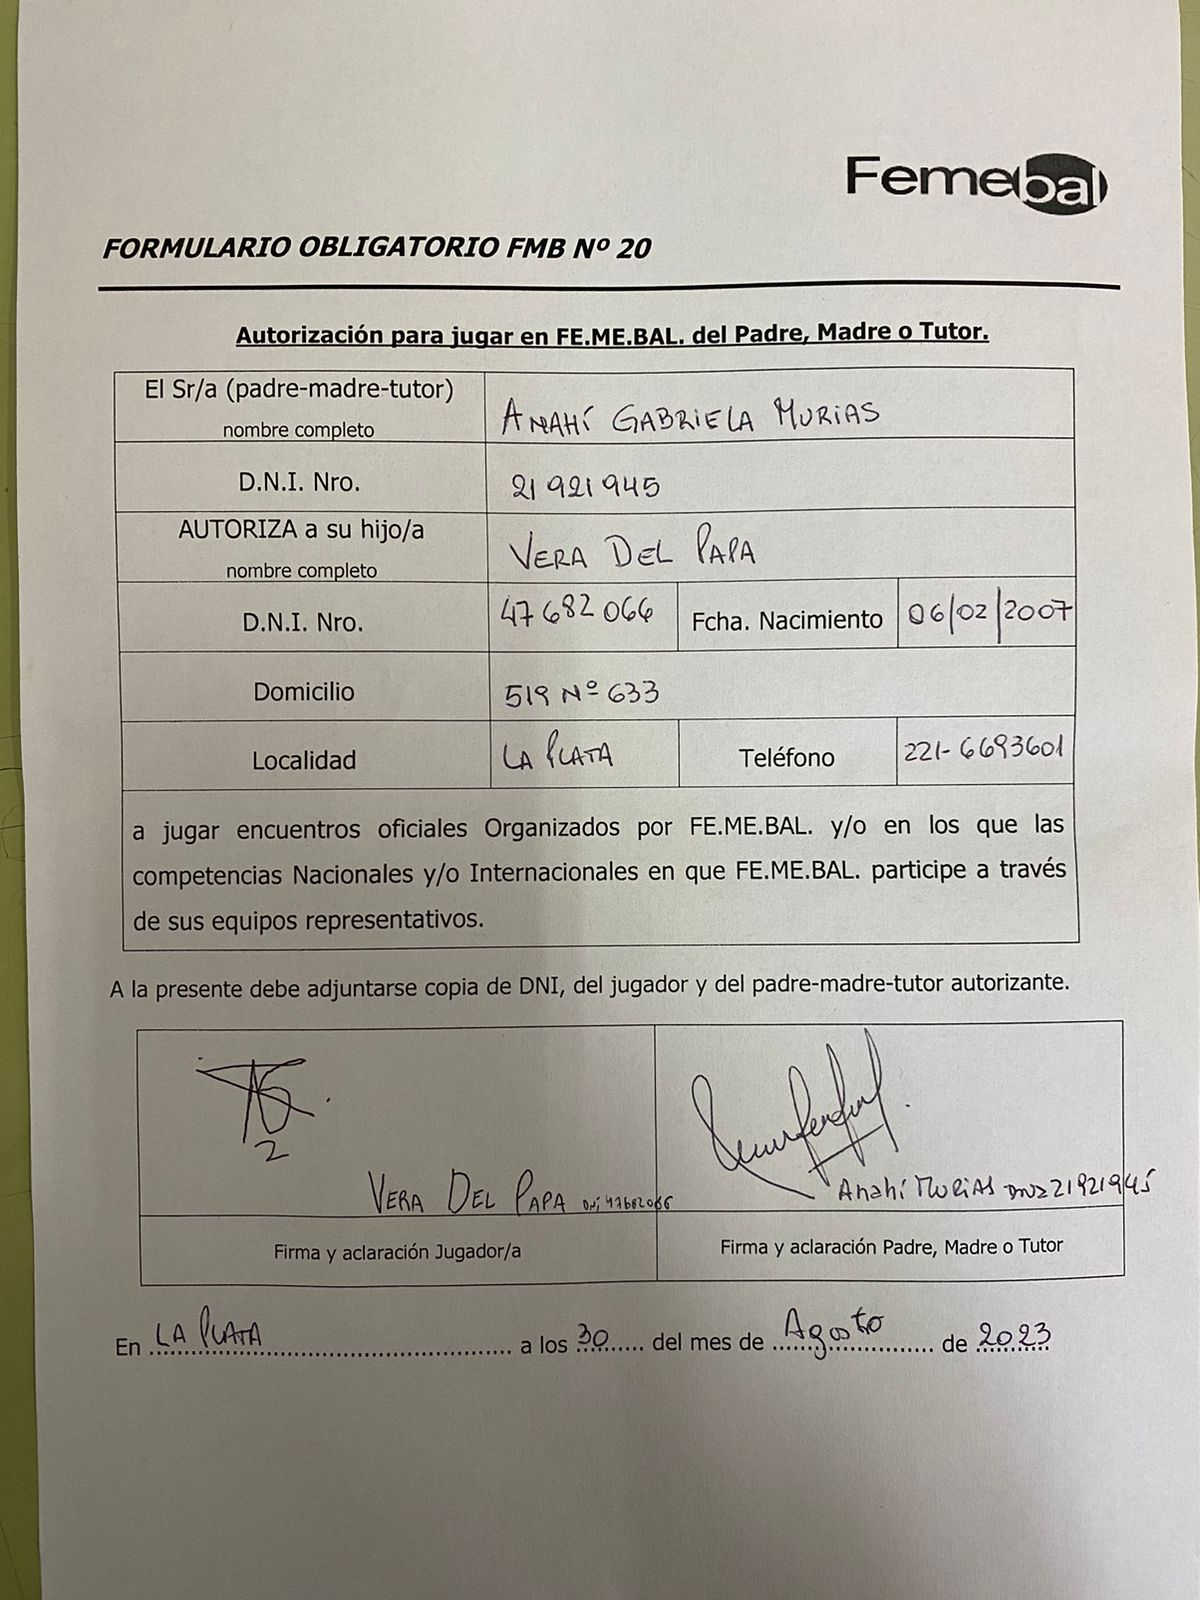 Femebal
FORMULARIO OBLIGATORIO FMB Nº 20
Autorización para jugar en FE.ME.BAL. del Padre, Madre o Tutor.
El Sr/a (padre-madre-tutor)
nombre completo
ANAHÍ GABRIELA MURIAS
D.N.I. Nro.
21 921 945
AUTORIZA a su hijo/a
nombre completo
VERA DEL PAPA
D.N.I. Nro.
47 682 066
Fcha. Nacimiento
06/02/2007
Domicilio
519 Nº 633
Localidad
LA PLATA
Teléfono
221-6693601
a jugar encuentros oficiales Organizados por FE.ME.BAL. y/o en los que las
competencias Nacionales y/o Internacionales en que FE.ME.BAL. participe a través
de sus equipos representativos.
A la presente debe adjuntarse copia de DNI, del jugador y del padre-madre-tutor autorizante.
VERA DEL PAPA DNI 47682066
Anahí MURIAS DNI 21921945
Firma y aclaración Jugador/a
Firma y aclaración Padre, Madre o Tutor
En LA PLATA a los 30 del mes de Agosto de 2023